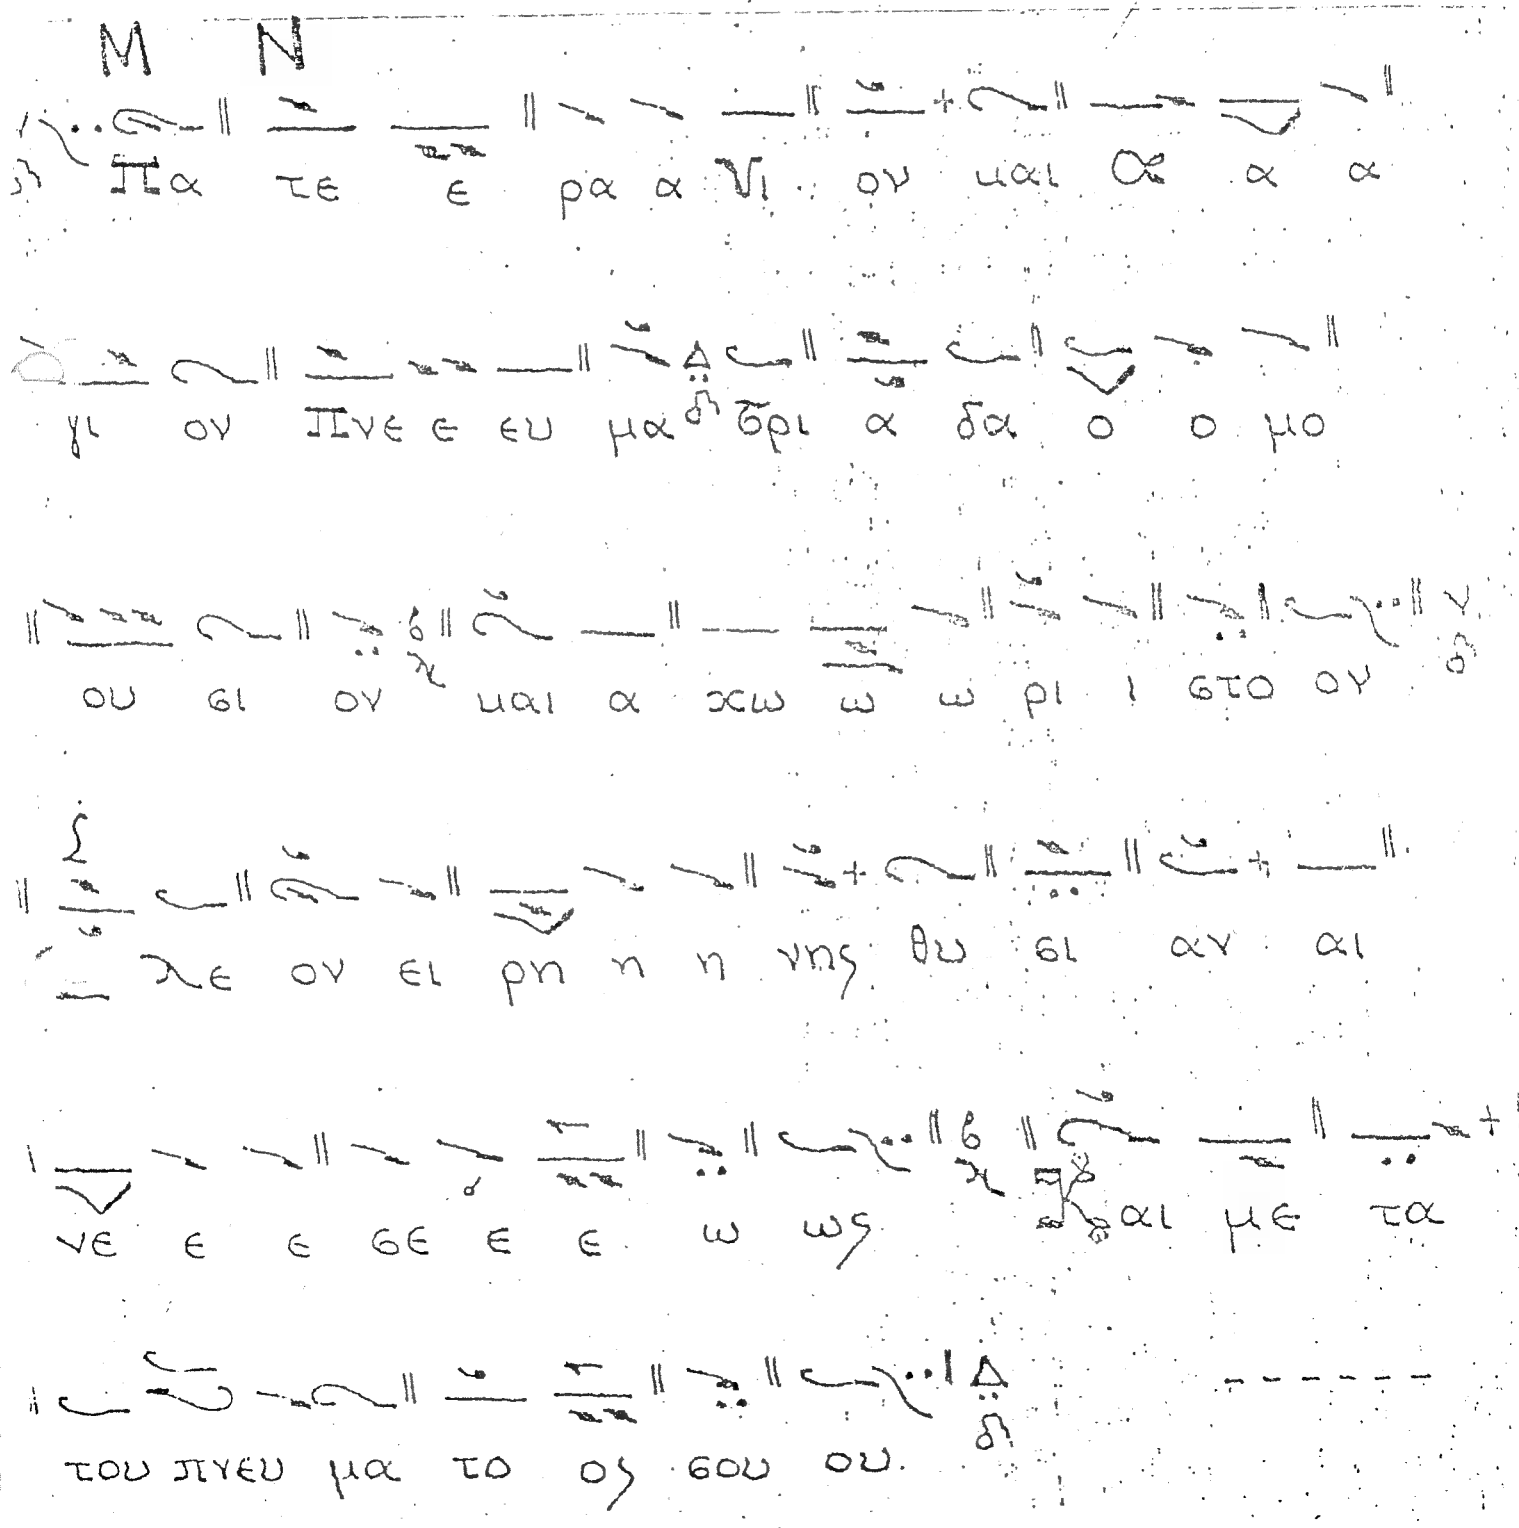 Μ Ν
Πα τε ε ρα α Υι ον και Α α α
γι ον Πνε ε ευ μα Τρι α δα ο ο μο
ου σι ον και α χω ω ω ρι ι στο ον
λε ον ει ρη η η νης θυ σι αν αι
νε ε ε σε ε ε ω ως Και με τα
του πνευ μα το ος σου ου.